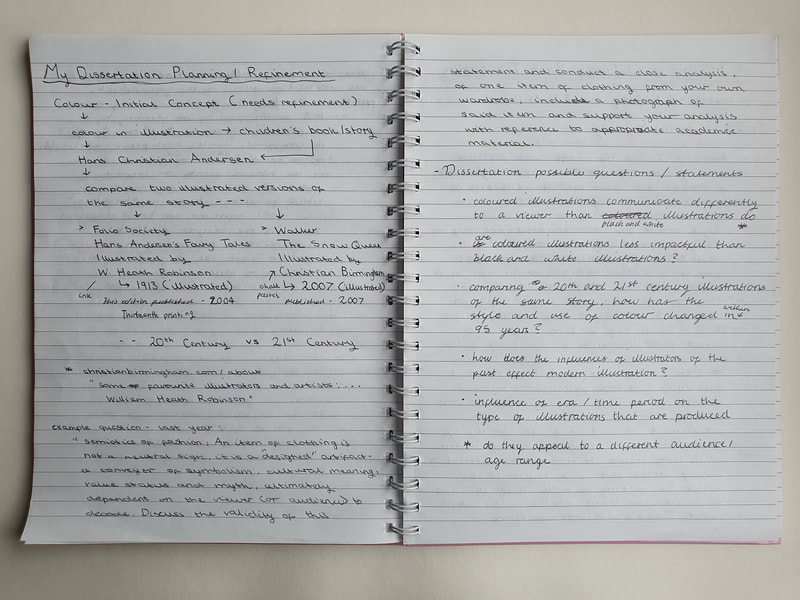 My Dissertation Planning / Refinement
Colour - Initial Concept (needs refinement)
↓
colour in illustration → children's book/story
↓
Hans Christian Andersen ←
↓
compare two illustrated versions of
the same story - - -
↓ ↓
> Folio Society
Hans Andersen's Fairy Tales
Illustrated by
W. Heath Robinson
ink ↳ 1913 (illustrated)
this edition published - 2004
Thirteenth printing
> Walker
The Snow Queen
Illustrated by
Christian Birmingham
chalk pastel ↳ 2007 (illustrated)
published - 2007
- - 20th Century vs 21st Century
* christianbirmingham.com/about
"some favourite illustrators and artists: ...
William Heath Robinson"
example question - last year:
"semiotics of fashion, An item of clothing is
not a neutral sign, it is a "designed" artifact -
a conveyor of symbolism, cultural meaning,
value status and myth, ultimately
dependent on the viewer (or audience) to
decode. Discuss the validity of this
statement and conduct a close analysis,
of one item of clothing from your own
wardrobe, include a photograph of
said item and support your analysis
with reference to appropriate academic
material.
- Dissertation possible questions / statements
• coloured illustrations communicate differently
to a viewer than coloured black and white illustrations do *
• are coloured illustrations less impactful than
black and white illustrations?
• comparing 20th and 21st century illustrations
of the same story, how has the
style and use of colour changed within
95 years?
• how does the influences of illustrators of the
past effect modern illustration?
• influence of era / time period on the
type of illustrations that are produced
* do they appeal to a different audience/
age range